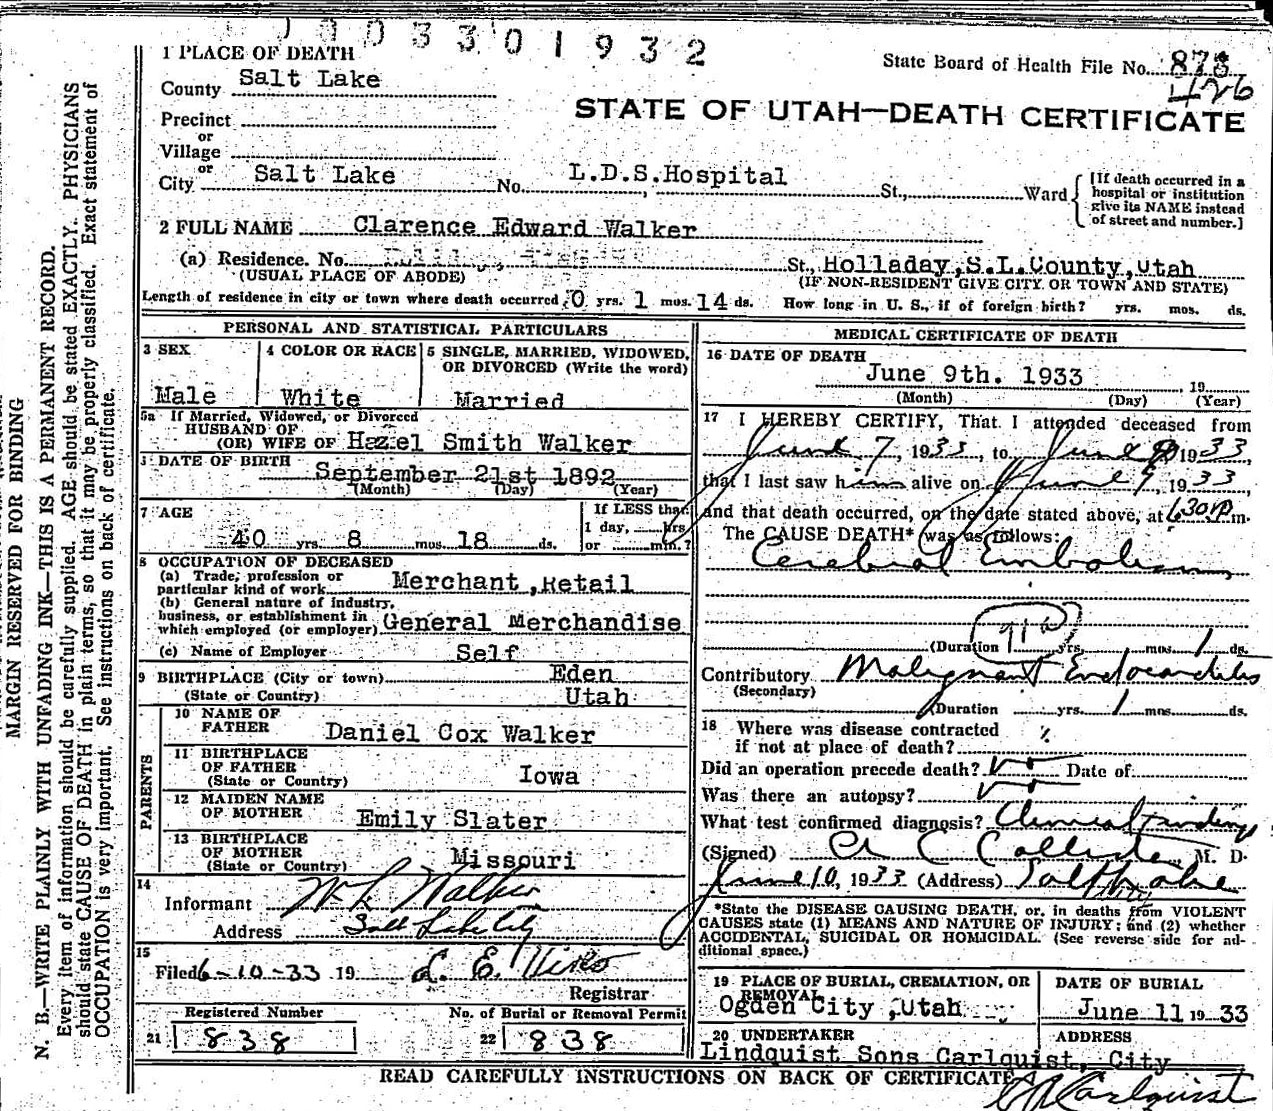 1 9 3 2
1 PLACE OF DEATH
State Board of Health File No.
426
County Salt Lake
STATE OF UTAH—DEATH CERTIFICATE
Precinct
or
Village
or
City Salt Lake No. L.D.S.Hospital St., Ward
[If death occurred in a
hospital or institution
give its NAME instead
of street and number.]
2 FULL NAME Clarence Edward Walker
(a) Residence. No. St., Holladay,S.L.County,Utah
(USUAL PLACE OF ABODE) (IF NON-RESIDENT GIVE CITY OR TOWN AND STATE)
Length of residence in city or town where death occurred, 0 yrs. 1 mos. 14 ds. How long in U. S., if of foreign birth? yrs. mos. ds.
PERSONAL AND STATISTICAL PARTICULARS
3 SEX
Male
4 COLOR OR RACE
White
5 SINGLE, MARRIED, WIDOWED,
OR DIVORCED (Write the word)
Married
5a If Married, Widowed, or Divorced
HUSBAND OF
(OR) WIFE OF Hazel Smith Walker
DATE OF BIRTH September 21st 1892
(Month) (Day) (Year)
7 AGE
40 yrs. 8 mos. 18 ds.
If LESS than
1 day, hrs
or min.?
8 OCCUPATION OF DECEASED
(a) Trade, profession or
particular kind of work Merchant,Retail
(b) General nature of industry,
business, or establishment in
which employed (or employer) General Merchandise
(c) Name of Employer Self
9 BIRTHPLACE (City or town) Eden
(State or Country) Utah
PARENTS
10 NAME OF
FATHER Daniel Cox Walker
11 BIRTHPLACE
OF FATHER
(State or Country) Iowa
12 MAIDEN NAME
OF MOTHER Emily Slater
13 BIRTHPLACE
OF MOTHER
(State or Country) Missouri
14
Informant Walker
Address Salt Lake City
15
Filed 6-10-33 19
Registrar
Registered Number
21 838
No. of Burial or Removal Permit
22 838
MEDICAL CERTIFICATE OF DEATH
16 DATE OF DEATH
June 9th. 1933 , 19
(Month) (Day) (Year)
17 I HEREBY CERTIFY, That I attended deceased from
June 7, 1933, to June 9 1933,
that I last saw him alive on June 9, 1933,
and that death occurred, on the date stated above, at 630 P m.
The CAUSE DEATH* was as follows:
Cerebral Embolism
(Duration yrs. mos. 1 ds.
Contributory Malignant Endocarditis
(Secondary)
(Duration yrs. 1 mos. ds.
18 Where was disease contracted
if not at place of death?
Did an operation precede death? Date of
Was there an autopsy?
What test confirmed diagnosis? Clinical Findings
(Signed) A C Callister, M. D.
June 10, 1933 (Address) Salt Lake City
*State the DISEASE CAUSING DEATH, or, in deaths from VIOLENT
CAUSES state (1) MEANS AND NATURE OF INJURY; and (2) whether
ACCIDENTAL, SUICIDAL OR HOMICIDAL. (See reverse side for ad-
ditional space.)
19 PLACE OF BURIAL, CREMATION, OR
REMOVAL
Ogden City ,Utah
DATE OF BURIAL
June 11 19 33
20 UNDERTAKER
Lindquist Sons Carlquist, City
ADDRESS
READ CAREFULLY INSTRUCTIONS ON BACK OF CERTIFICATE
Carlquist
MARGIN RESERVED FOR BINDING
N. B.—WRITE PLAINLY WITH UNFADING INK—THIS IS A PERMANENT RECORD.
Every item of information should be carefully supplied. AGE should be stated EXACTLY. PHYSICIANS
should state CAUSE OF DEATH in plain terms, so that it may be properly classified. Exact statement of
OCCUPATION is very important. See instructions on back of certificate.